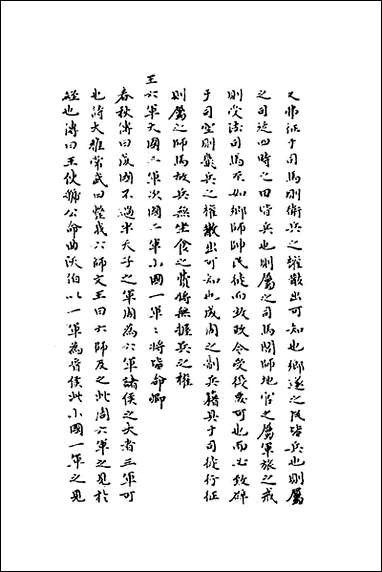 又非征于司馬則衛兵之權散出可知也鄉遂之民皆兵也則屬
之司徒四時之田皆兵也則屬之司馬閭師地官之屬軍旅之戒
則受法司馬至如鄉師帥民徒而致政令受役要可也而必致辟
于司空則歛兵之權散出可知也成周之制兵籍具于司徒行征
則屬之師馬故兵無坐食之費傅無握兵之權
王六軍大國三軍次國二軍小國一軍軍將皆命卿
春秋傳曰成國不過半天子之軍周為六軍諸侯之大者三軍可
也詩大雅常武曰整我六師文王曰六師及之此周六軍之見於
經也傳曰王使虢公命曲沃伯以一軍為晉侯此小國一軍之見